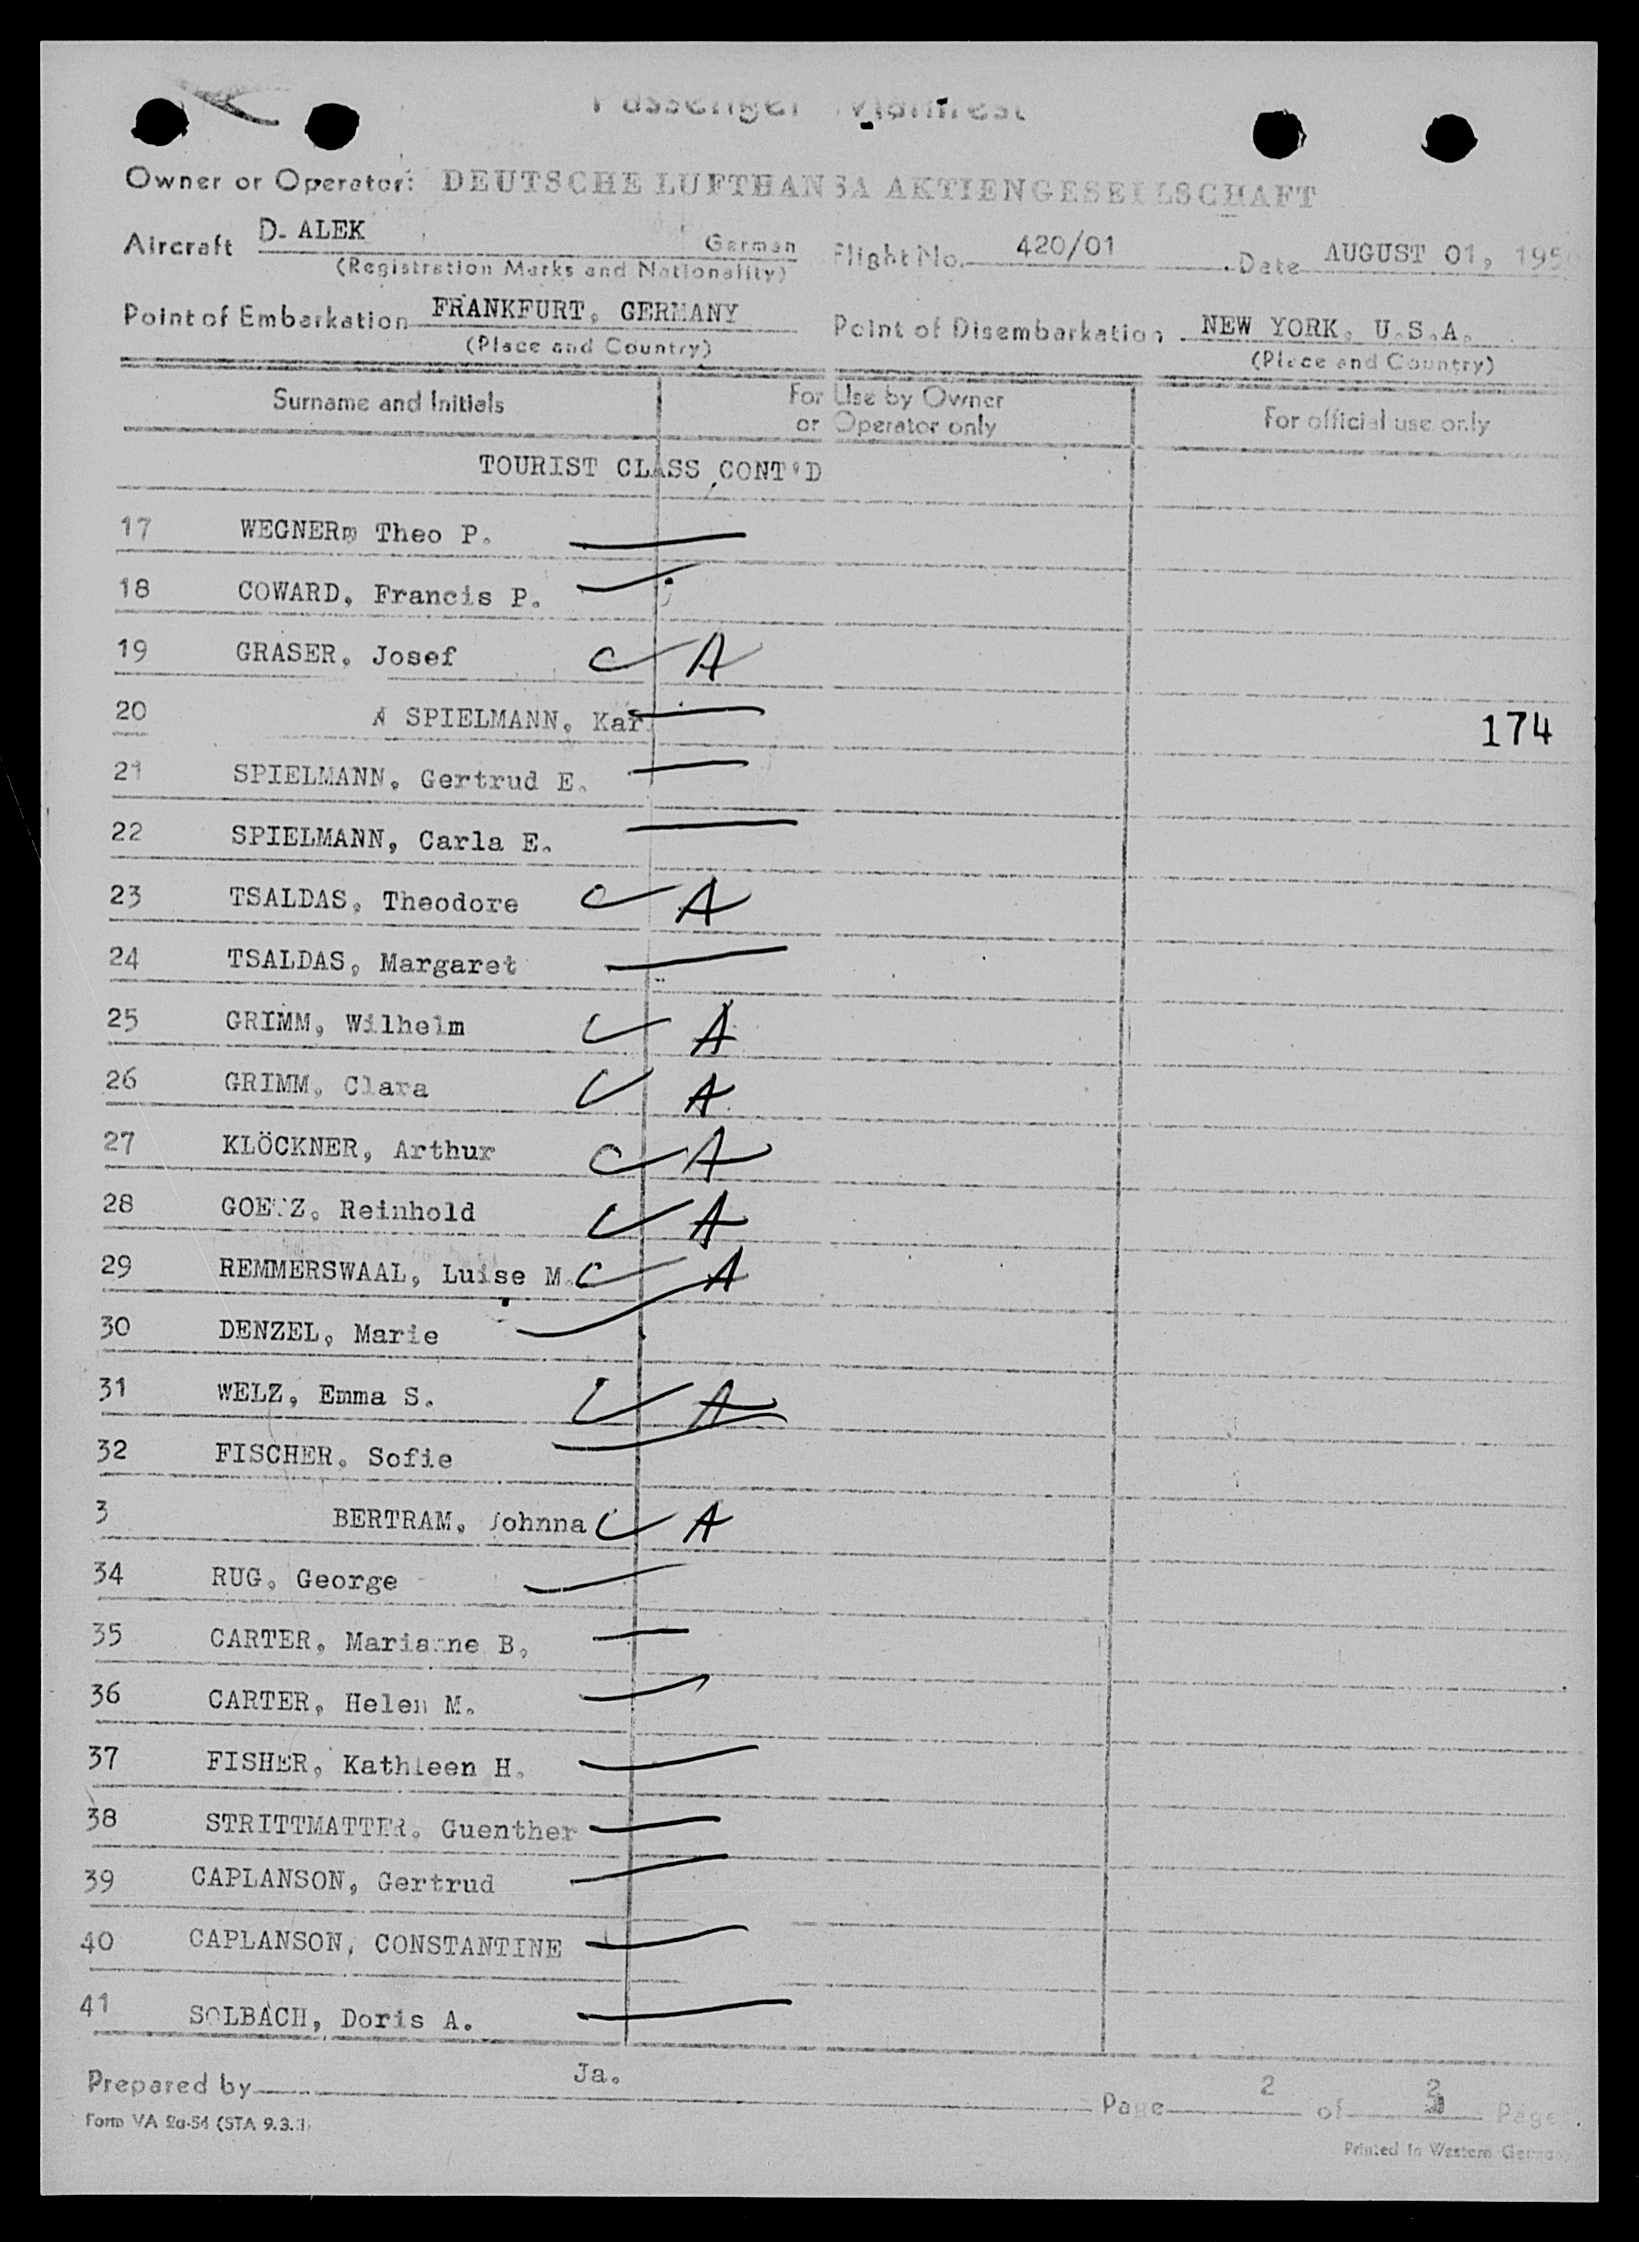 Passenger Manifest
Owner or Operator: DEUTSCHE LUFTHANSA AKTIENGESELLSCHAFT
Aircraft D- ALEK German Flight No. 420/01 Date AUGUST 01, 195
(Registration Marks and Nationality)
Point of Embarkation FRANKFURT, GERMANY Point of Disembarkation NEW YORK, U.S.A.
(Place and Country) (Place and Country)
Surname and Initials For Use by Owner or Operator only For official use only
TOURIST CLASS CONT'D
17 WEGNER, Theo P.
18 COWARD, Francis P.
19 GRASER, Josef A
20 SPIELMANN, Kar
174
21 SPIELMANN, Gertrud E.
22 SPIELMANN, Carla E.
23 TSALDAS, Theodore A
24 TSALDAS, Margaret
25 GRIMM, Wilhelm A
26 GRIMM, Clara A
27 KLÖCKNER, Arthur A
28 GOETZ, Reinhold A
29 REMMERSWAAL, Luise M. A
30 DENZEL, Marie
31 WELZ, Emma S. A
32 FISCHER, Sofie
3 BERTRAM, Johnna A
34 RUG, George
35 CARTER, Marianne B.
36 CARTER, Helen M.
37 FISHER, Kathleen H.
38 STRITTMATTER, Guenther
39 CAPLANSON, Gertrud
40 CAPLANSON, CONSTANTINE
41 SOLBACH, Doris A.
Prepared by Ja. Page 2 of 2 Page
Form VA 2a-54 (STA 9.3.1)
Printed in Western Germany